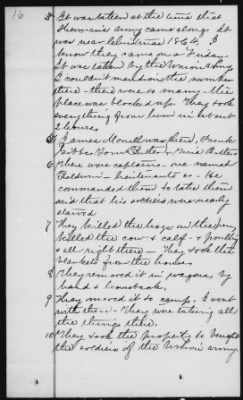 16
5 It was taken at the time that
Sherman's army came along. It
was near Christmas 1864. I
know they came on a Friday.
It was taken by the Union Army
I couldn't mention the number
there - there were so many - the
place was blocked up. They took
everything from him in about
2 hours.
James Monell was here, Frank
Gibbs, Tom
6 There were captains - one named
Baldwin - lieutenants &c - He
commanded them to take them
and that his soldiers were nearly
starved
7 They killed the hogs in the pen,
killed the cow & calf - & poultry
& all right there - They took the
blankets from the house.
8 They removed it in wagons, by
hand & horseback.
9 They moved it to camp. I went
with them - They was using all
the things there.
10 They took the property to
the soldiers of the Union army